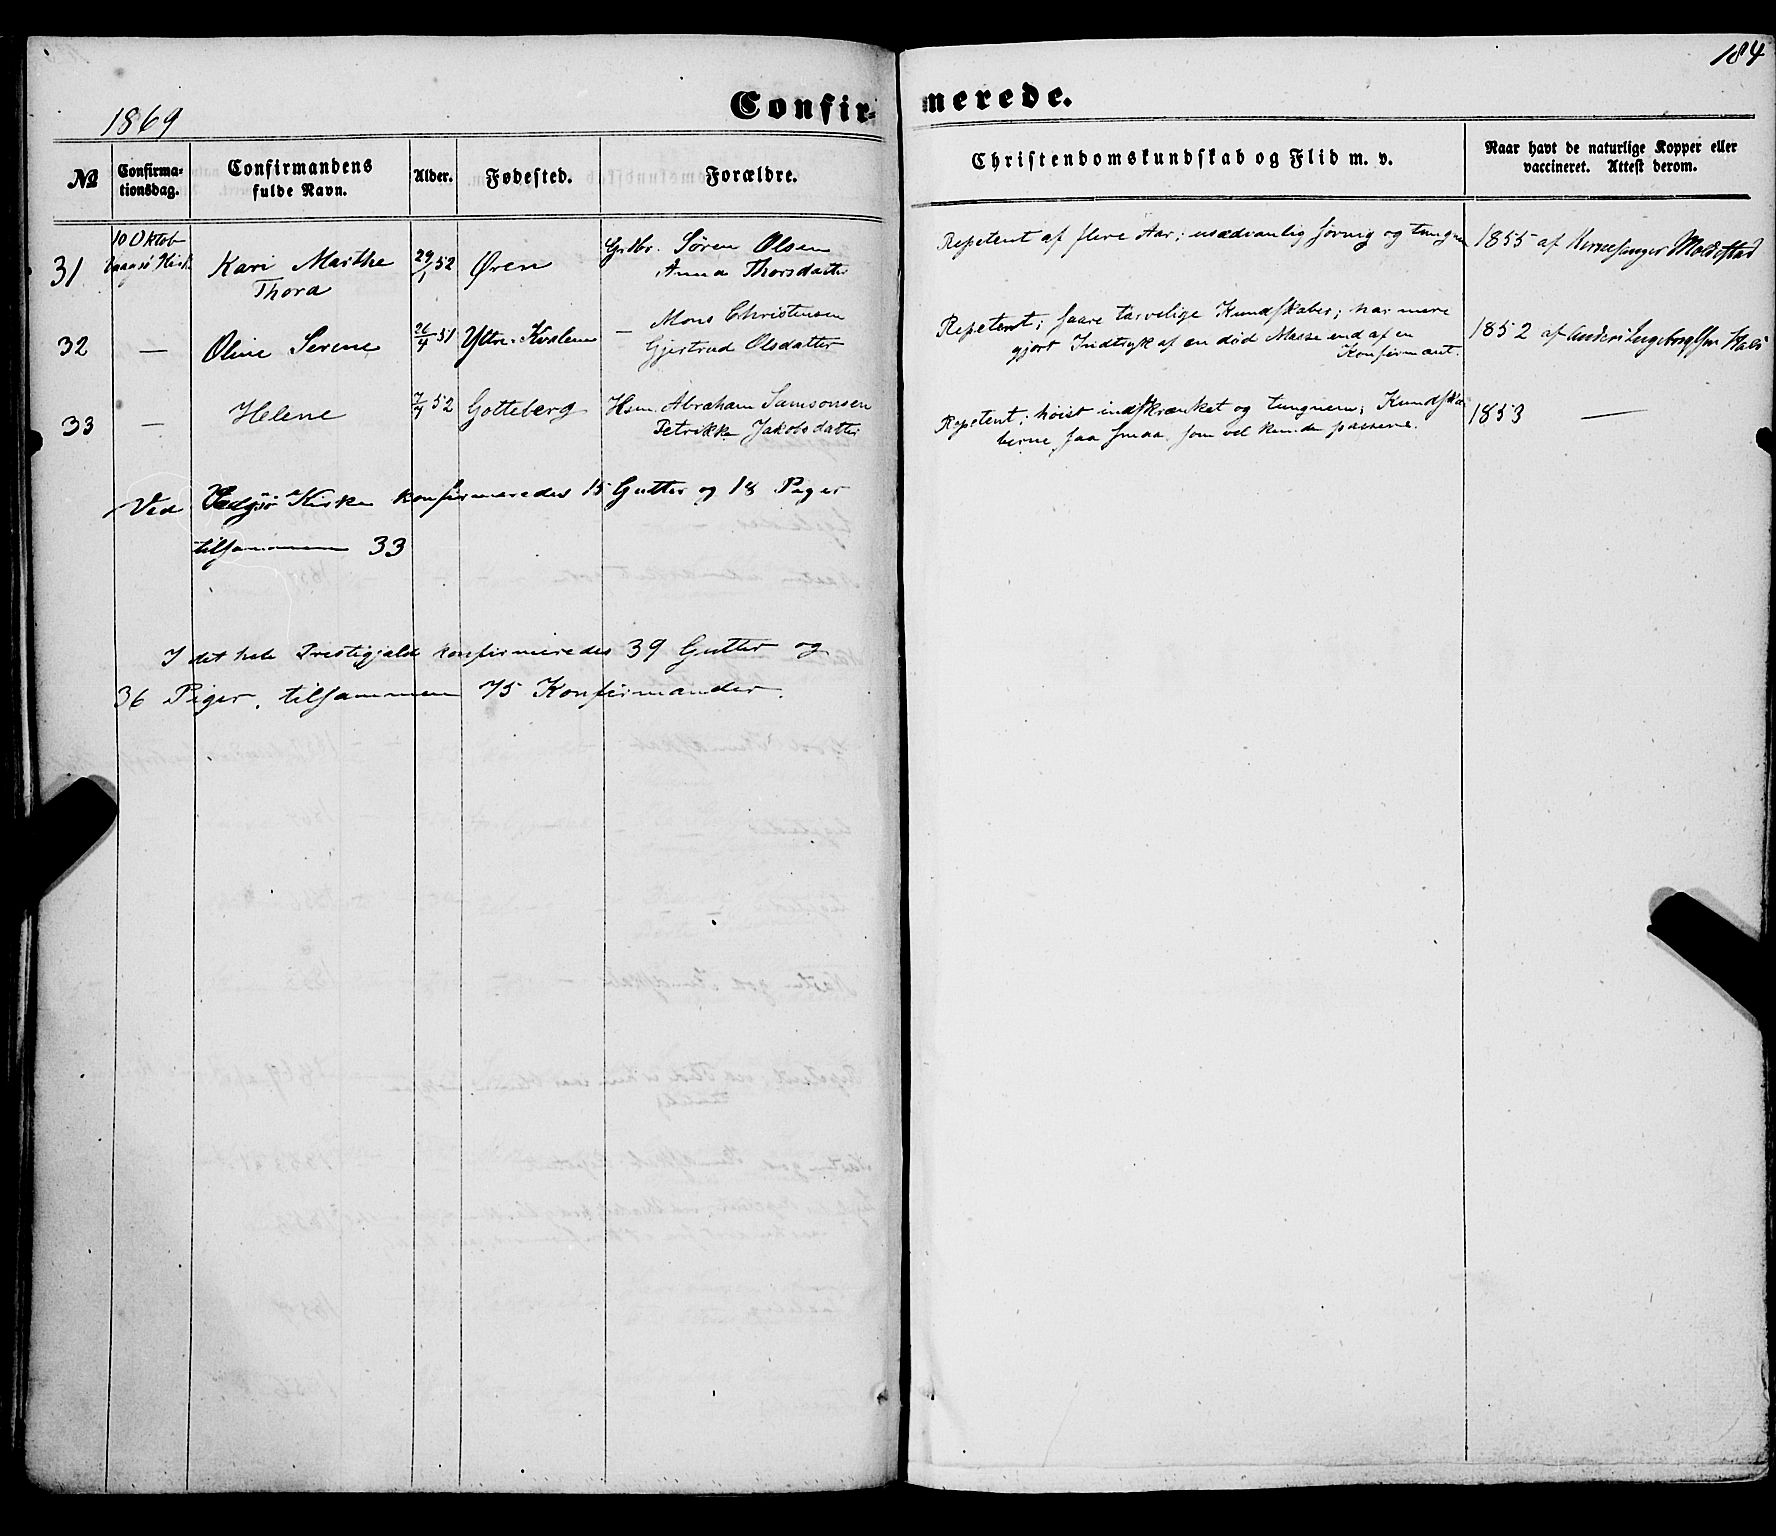 184
1869
Confir-
merede.
No
Confirma-
tionsdag.
Confirmandens
fulde Navn.
Alder.
Fødested.
Forældre.
Christendomskundskab og Flid m. v.
Naar havt de naturlige Kopper eller
vaccineret. Attest derom.
10 Oktob
31 Vaagsø Kirke Kari Marthe 29/1 52 Øren Grdbr. Søren Olsen
Thora Anna Thorsdatter
Repetent af flere Aar; usædvanlig sørvig og tungnem
1855 af Kirkesanger Moldestad
32 — Oline Serene 26/4 51 Ytre-Kvalem — Mons Christensen
Gjertrud Olsdatter
Repetent; saare tarvelige Kundskaber; har mere
gjort Indtryk af en død Masse end af en
Konfirmant.
1852 af Anders Ingebrigtsen
33 — Helene 7/4 52 Gotteberg Hsm. Abraham Samsonsen
Petrikke Jakobsdatter
Repetent; høist indskrænket og tungnem; Kundska-
berne saa smaa, som vel kunde passere.
1853 —
Ved Vaagsø Kirke konfirmeredes 15 Gutter og 18 Piger
tilsammen 33
I det hele Prestegjeld konfirmeredes 39 Gutter og
36 Piger, tilsammen 75 Konfirmander.